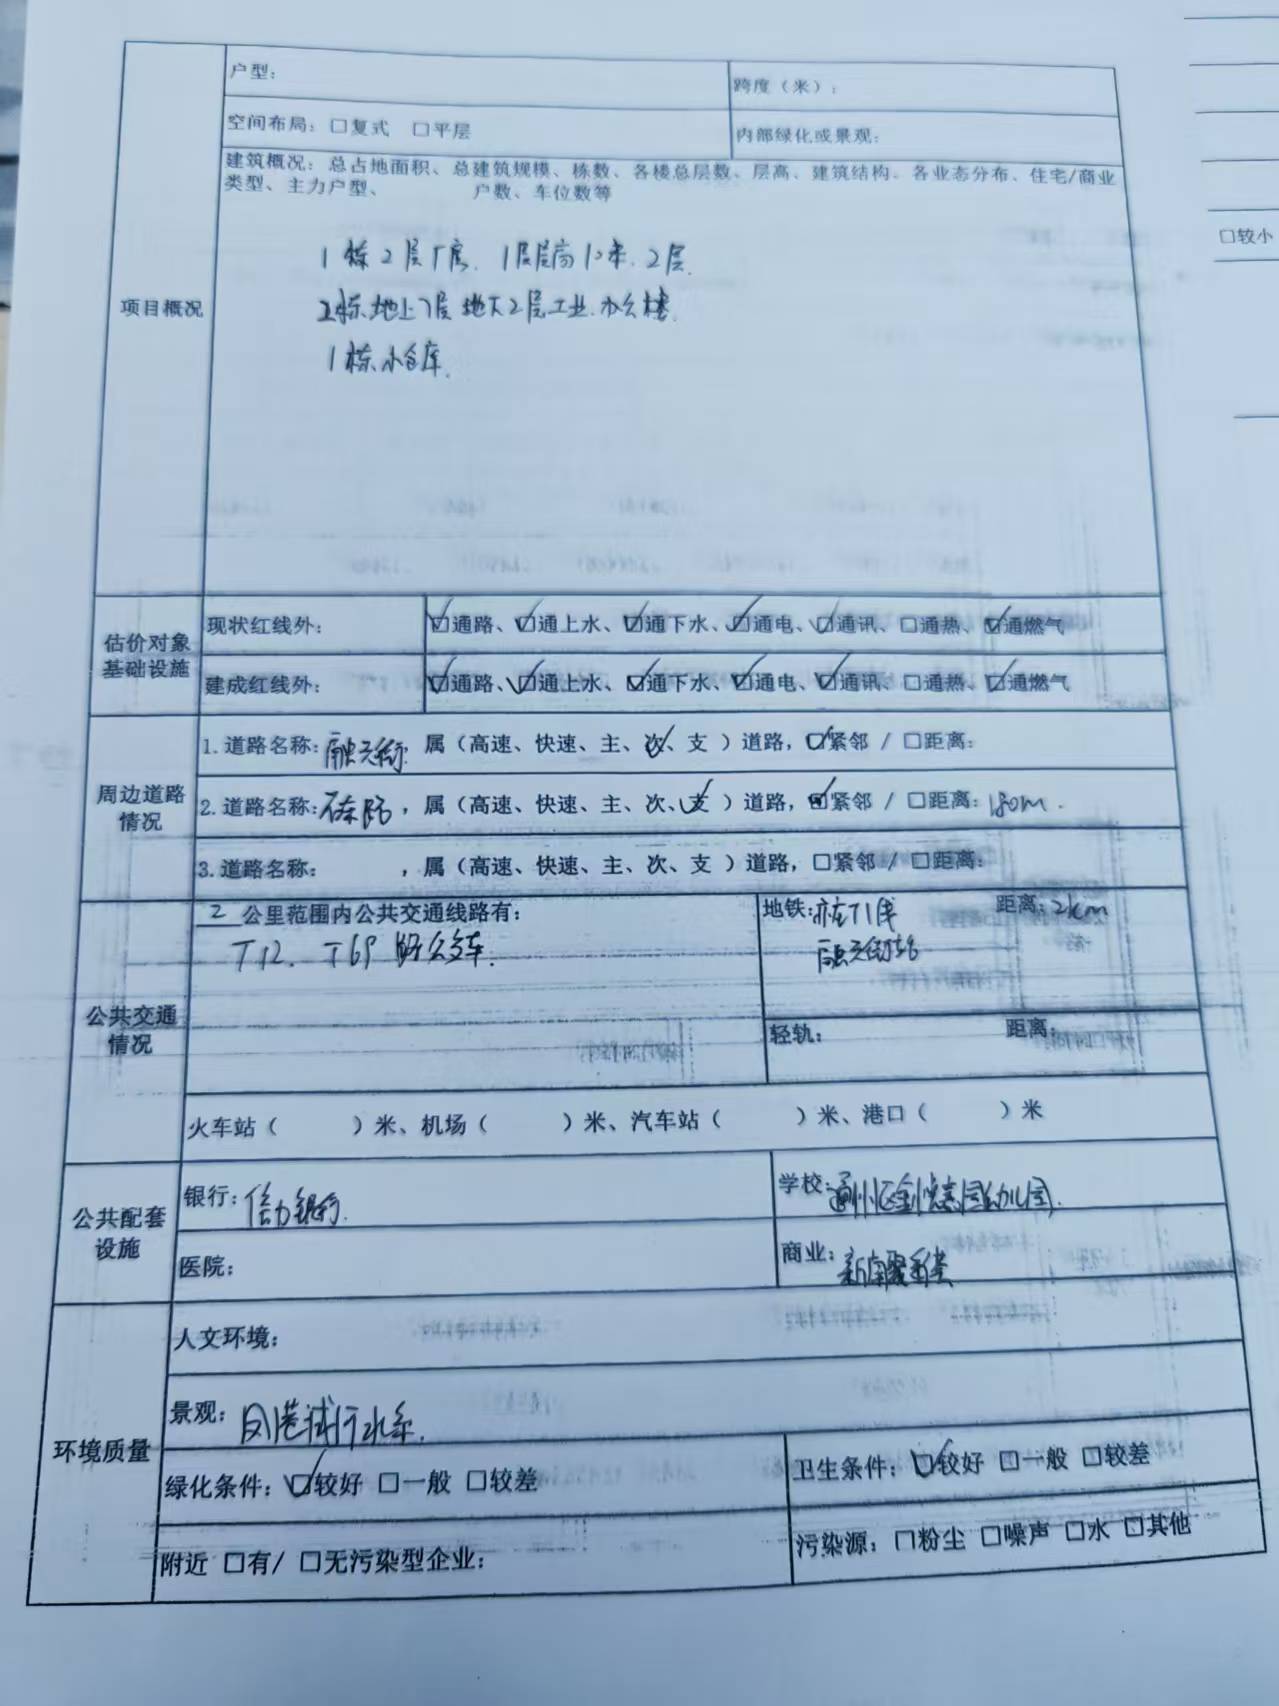 户型：
跨度（米）：
空间布局：□复式 □平层
内部绿化或景观：
建筑概况：总占地面积、总建筑规模、栋数、各楼总层数、层高、建筑结构、各业态分布、住宅/商业
类型、主力户型、 户数、车位数等
项目概况
1栋2层厂房、1层层高10米、2层
2栋地上7层地下2层工业办公楼
1栋小仓库
估价对象
基础设施
现状红线外：
☑通路、☑通上水、☑通下水、☑通电、☑通讯、□通热、☑通燃气
建成红线外：
☑通路、☑通上水、☑通下水、☑通电、☑通讯、□通热、☑通燃气
周边道路
情况
1.道路名称：融兴街，属（高速、快速、主、次✓、支 ）道路，☑紧邻 / □距离：
2.道路名称：，属（高速、快速、主、次、支✓ ）道路，紧邻 / □距离：180m.
3.道路名称： ，属（高速、快速、主、次、支 ）道路，□紧邻 / □距离：
公共交通
情况
2 公里范围内公共交通线路有：
T12、T69 公交车.
地铁：亦庄T1线 距离：2km
融兴街站
轻轨： 距离：
火车站（ ）米、机场（ ）米、汽车站（ ）米、港口（ ）米
公共配套
设施
银行：银行.
学校：通州区金幼儿园.
医院：
商业：新
环境质量
人文环境：
景观：凤港减河水系.
绿化条件：☑较好 □一般 □较差
卫生条件：☑较好 □一般 □较差
附近 □有/ □无污染型企业：
污染源：□粉尘 □噪声 □水 □其他
□较小